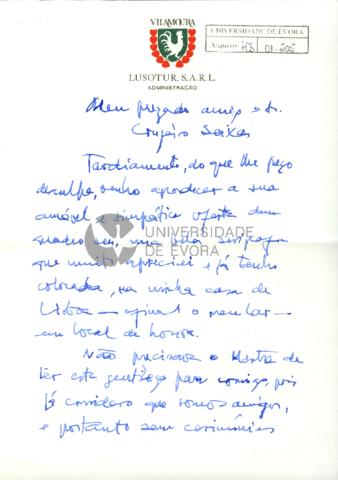 VILAMOURA
UNIVERSIDADE DE ÉVORA
Arquivo:
LUSOTUR, S.A.R.L.
ADMINISTRAÇÃO
Meu prezado amigo e Sr.
Cruzeiro Seixas
Tardiamente, do que lhe peço
desculpa, venho agradecer a sua
amável e simpática oferta dum
quadro seu, uma bela serigrafia
que muito apreciei e já tenho
colocada, na minha casa de
Lisboa — afinal o meu lar —
em local de honra.
UNIVERSIDADE
DE ÉVORA
Não precisava o Mestre de
ter esta gentileza para comigo pois
já considero que somos amigos,
e portanto sem cerimónias